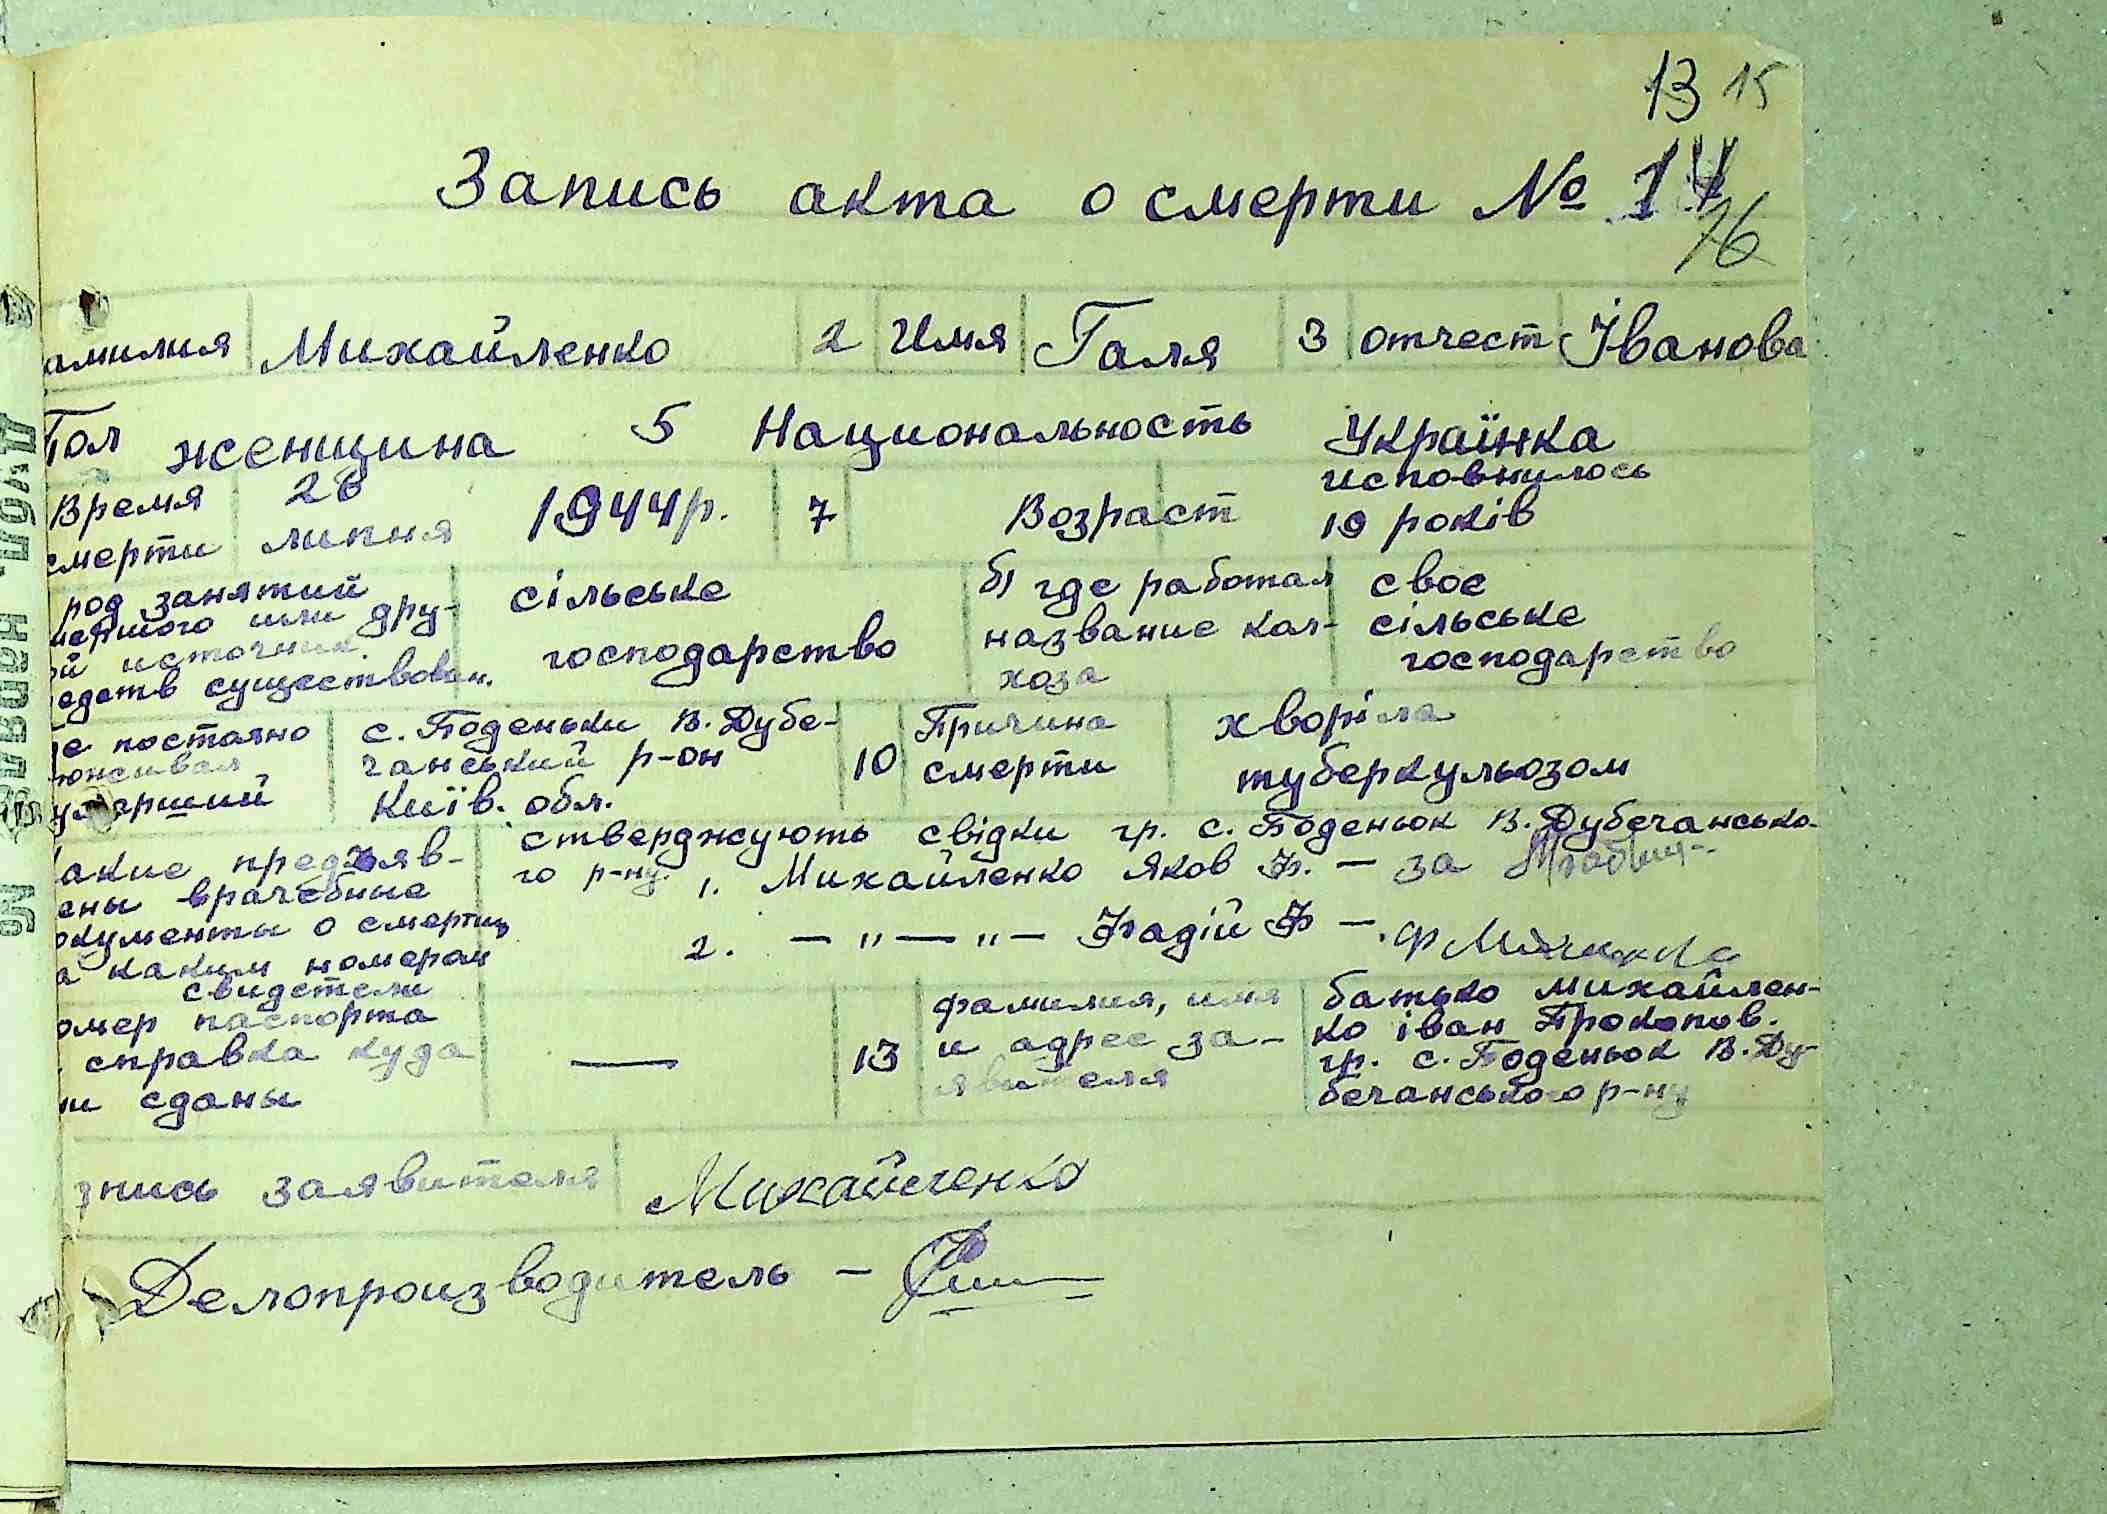 13 15
Запись акта о смерти № 14
16
амилия Михайленко 2 Имя Галя 3 отчест Іванова
Пол женщина 5 Национальность Українка
Время смерти 28 липня 1944 р. 7 Возраст исповнилось 19 років
род занятий
мершого или дру-
ой источник
едств существован.
сільське
господарство
б) где работал
название кол-
хоза
своє
сільське
господарство
де постаяно
умерший
с. Боденьки В. Дубе-
чанський р-он
Київ. обл.
10 Причина
смерти
хворіла
туберкульозом
акие предъяв-
ены врачебные
окументы о смерти
а каким номером
свидетели
стверджують свідки гр. с. Боденьок В. Дубечансько-
го р-ну. 1. Михайленко Яков - за
2. — " — " —
омер паспорта
справка куда
ли сданы
—
13 фамилия, имя
и адрес за-
явителя
батько Михайлен-
ко іван Прокопов.
гр. с. Боденьок В. Ду-
бечанського р-ну
дпись заявителя Михайленко
Делопроизводитель -